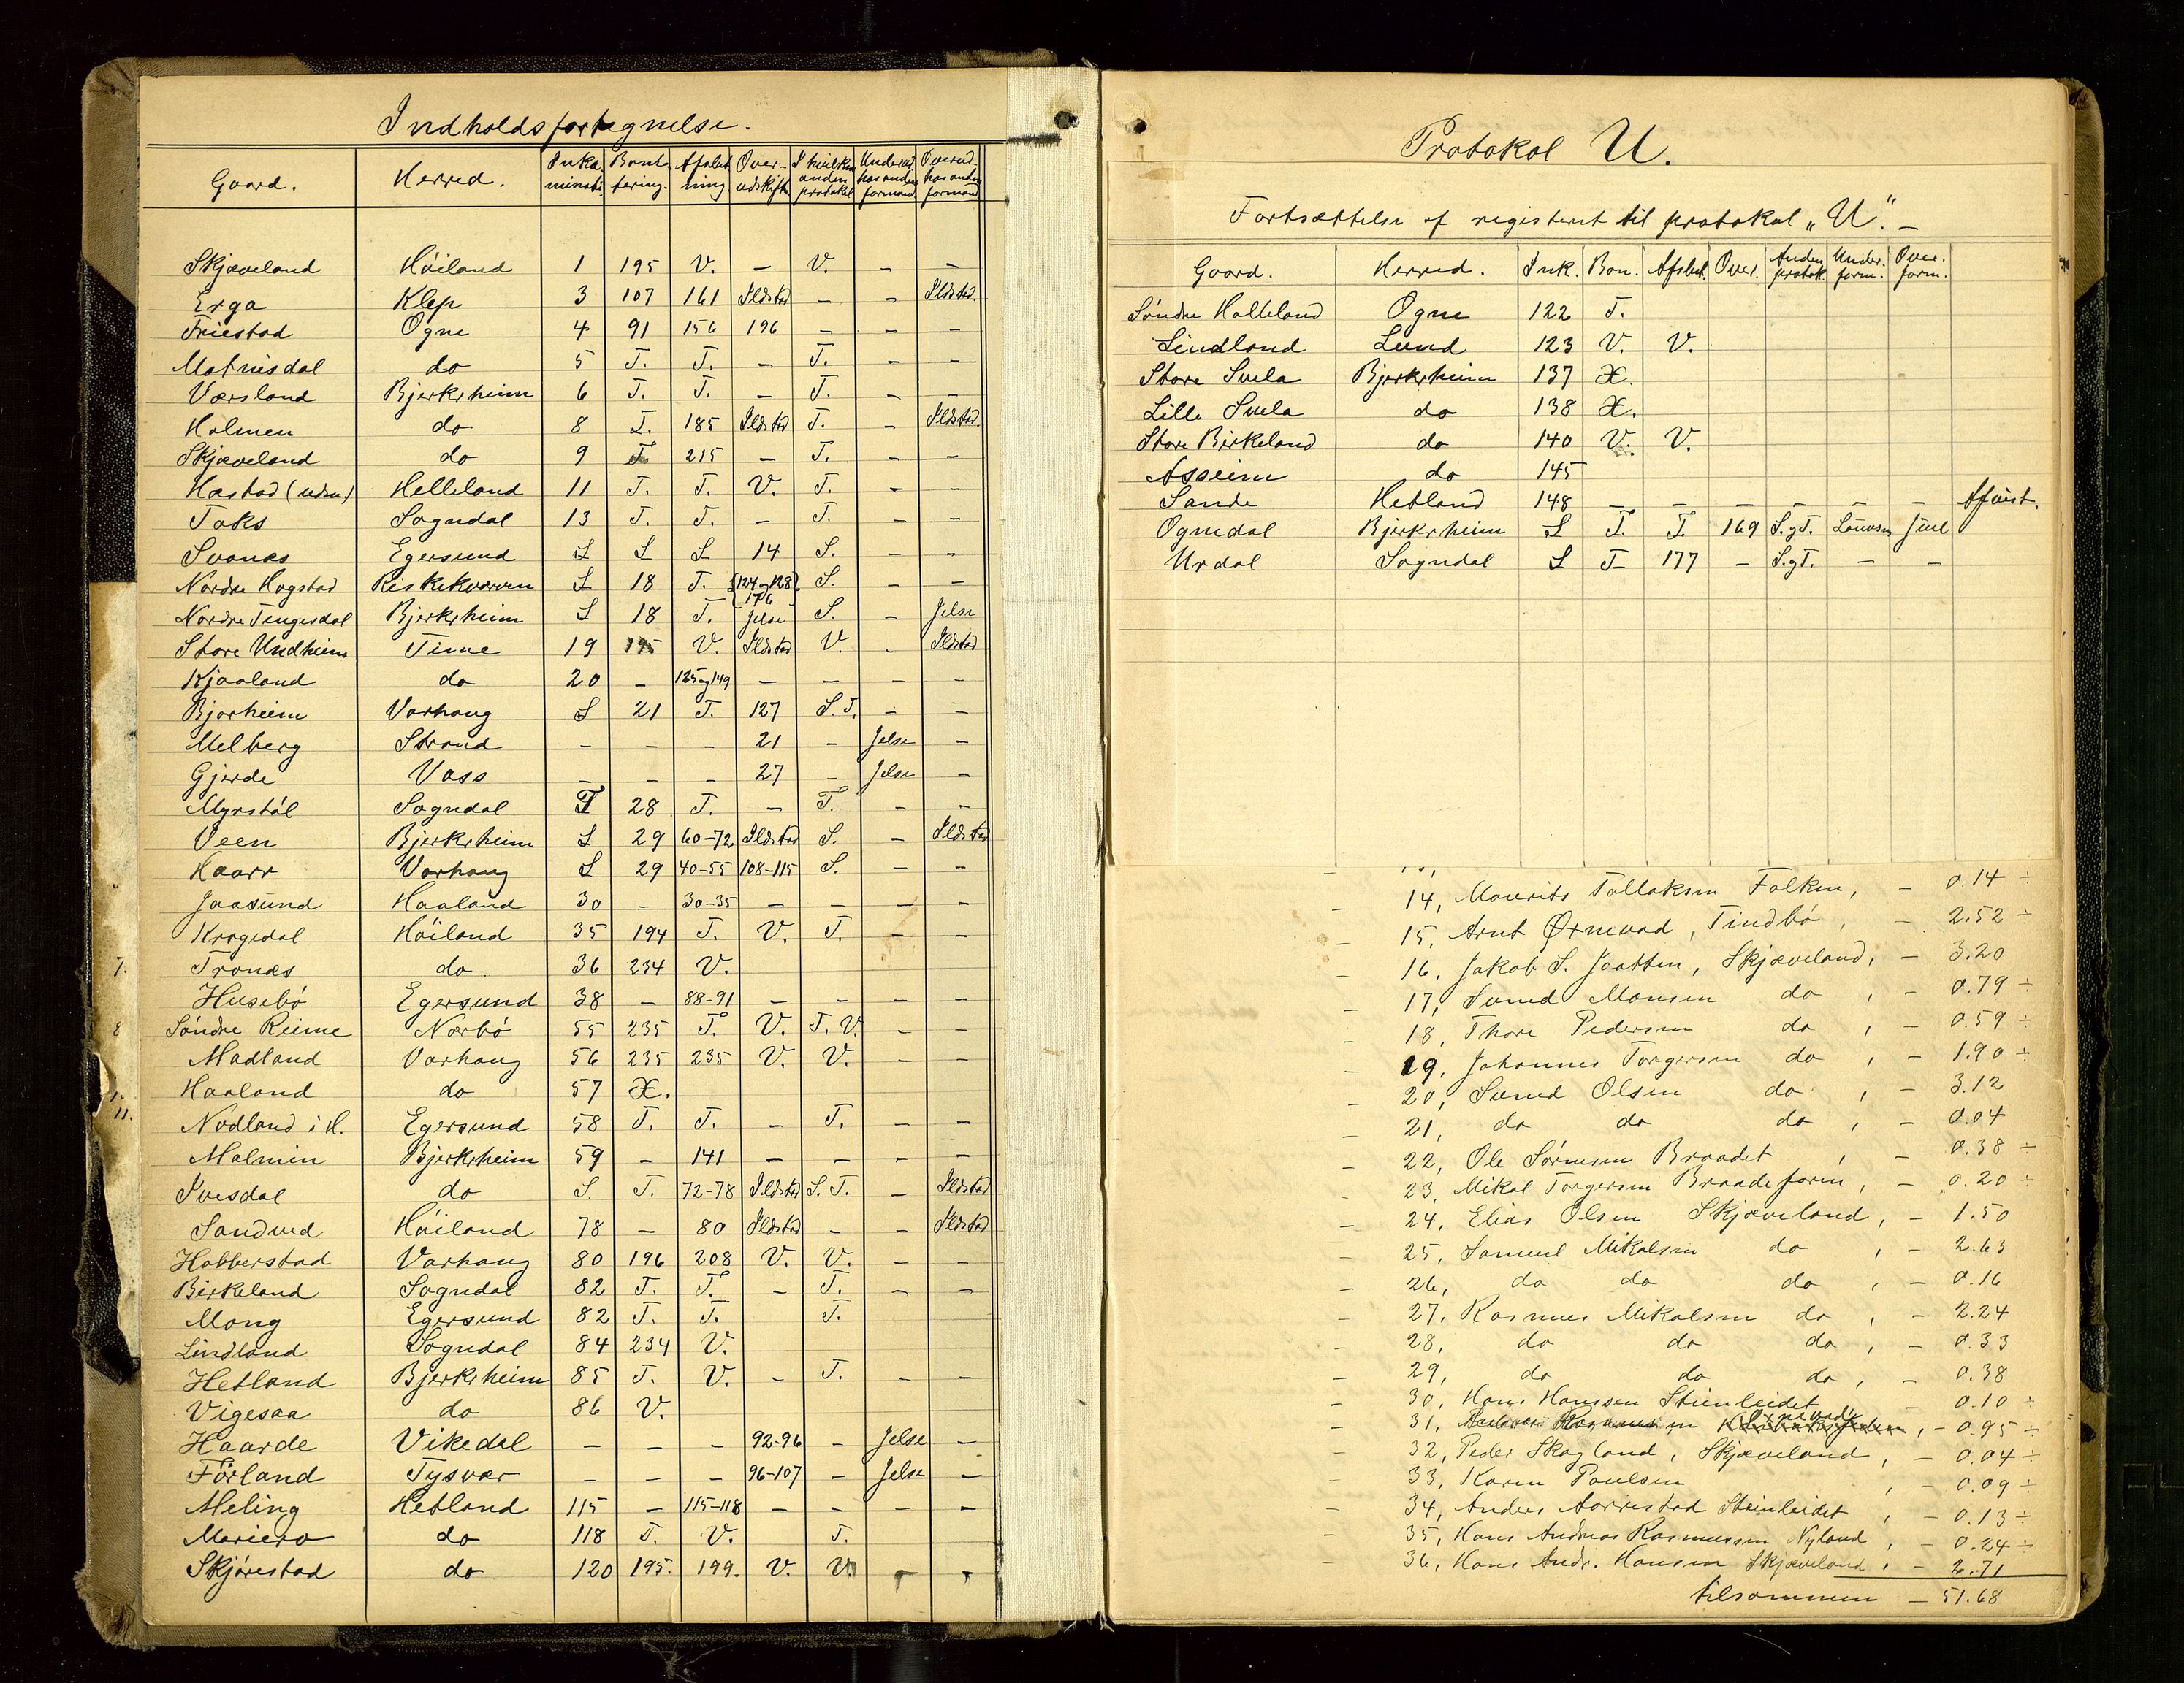 Indholdsfortegnelse.
Gaard. Herred. Inka- minati. Boni- tering. Afslut- ning. Over- udskift. I hvilken anden protokol Underud. hos anden formand Overud. hos anden formand
Skjæveland Höiland 1 195 V. — V. — —
Erga Klep 3 107 161 Ildstad — — Ildstad.
Friestad Ogne 4 91 156 196 — — —
Matnisdal do 5 T. T. — T. — —
Værsland Bjerkrheim 6 T. T. — T. — —
Holmen do 8 T. 185 Ildstad T. — Ildstad.
Skjæveland do 9 T 215 — T. — —
Hæstad (udm.) Helleland 11 T. T. V. T. — —
Toks Sogndal 13 T. T. — T. — —
Svanes Egersund S S S 14 S. — —
Nordre Hogstad Riskekværven S 18 T. {124 og 128} 176 S. — —
Nordre Tengesdal Bjerkrheim S 18 T. Jelse S. — Jelse
Store Undheim Time 19 195 V. Ildstad V. — Ildstad
Kjaaland do 20 — 125 og 149 — — — —
Bjorheim Varhaug S 21 T. 127 S.T. — —
Melberg Strand — — — 21 — Jelse —
Gjerde Vass — — — 27 — Jelse —
Myrstöl Sogndal T 28 T. — T. — —
Veen Bjerkrheim S 29 60-72 Ildstad S. — Ildstad
Haarr Varhaug S 29 40-55 108-115 S. — —
Jaasund Haaland 30 — 30-35 — — — —
Krogedal Höiland 35 194 T. V. T. — —
7. Tronæs do 36 234 V.
Husebö Egersund 38 — 88-91 — — — —
8 Söndre Reime Nærbö 55 235 T. V. T. V. — —
Madland Varhaug 56 235 235 V. V. — —
Haaland do 57 Æ.
11. Nodland i H. Egersund 58 T. T. — T. — —
Malmin Bjerkrheim 59 — 141 — — — —
Ivesdal do S. T. 72-78 Ildstad S. T. — Ildstad
Sandved Höiland 78 — 80 Ildstad — — Ildstad
Hobberstad Varhaug 80 196 208 V. V. — —
Birkeland Sogndal 82 T. T. — T. — —
Mong Egersund 82 T. T. T.
Lindland Sogndal 84 234 V.
Hetland Bjerkrheim 85 T. V. — T. — —
Vigesaa do 86 V.
Haarde Vikedal — — — 92-96 — Jelse —
Förland Tysvær — — — 96-107 — Jelse —
Meling Hetland 115 — 115-118 — — — —
Mariero do 118 T. V. T.
Skjörestad do 120 195. 199. V. V. — —
Protokol U.
Fortsættelse af registeret til protokol „U". —
Gaard. Herred. Ink. Bon. Afslut. Over. Anden protok. Under. form. Over. form.
Söndre Halleland Ogne 122 T.
Lindland Lund 123 V. V.
Store Svela Bjerkrheim 137 Æ.
Lille Svela do 138 Æ.
Store Birkeland do 140 V. V.
Asseim do 145
Sande Hetland 148 — — — — — — Afvist.
Ognedal Bjerkrheim S T. T 169 S.gT. Juel
Urdal Sogndal S T 177 — S.gT. — —
— 14, Mourits Tollaksen Falken, — 0.14 ÷
— 15, Arnt Ørnevad, Tindbö, — 2.52 ÷
— 16, Jakob S. Jaatten, Skjæveland, — 3.20
— 17, Svend Monsen do, — 0.79 ÷
— 18, Thore Pedersen do, — 0.59 ÷
— 19, Johannes Torgersen do, — 1.90 ÷
— 20, Svend Olsen do, — 3.12
— 21, do do do, — 0.04
— 22, Ole Sörensen Braadet, — 0.38 ÷
— 23, Mikal Torgersen Braadeform, — 0.20 ÷
— 24, Elias Olsen Skjæveland, — 1.50
— 25, Samuel Mikalsen do, — 2.63
— 26, do do do, — 0.16
— 27, Rasmus Mikalsen do, — 2.24
— 28, do do do, — 0.33
— 29, do do do, — 0.38
— 30, Hans Hanssen Stenleidet — 0.10 ÷
— 31, — 0.95 ÷
— 32, Peder Skagland, Skjæveland, — 0.04 ÷
— 33, Karen Paulsen, — 0.09 ÷
— 34, Anders Aarrestad Stenleidet, — 0.13 ÷
— 35, Hans Andreas Rasmussen Nyland, — 0.24 ÷
— 36, Hans Andr. Hansen Skjæveland, — 2.71
tilsammen — 51.68